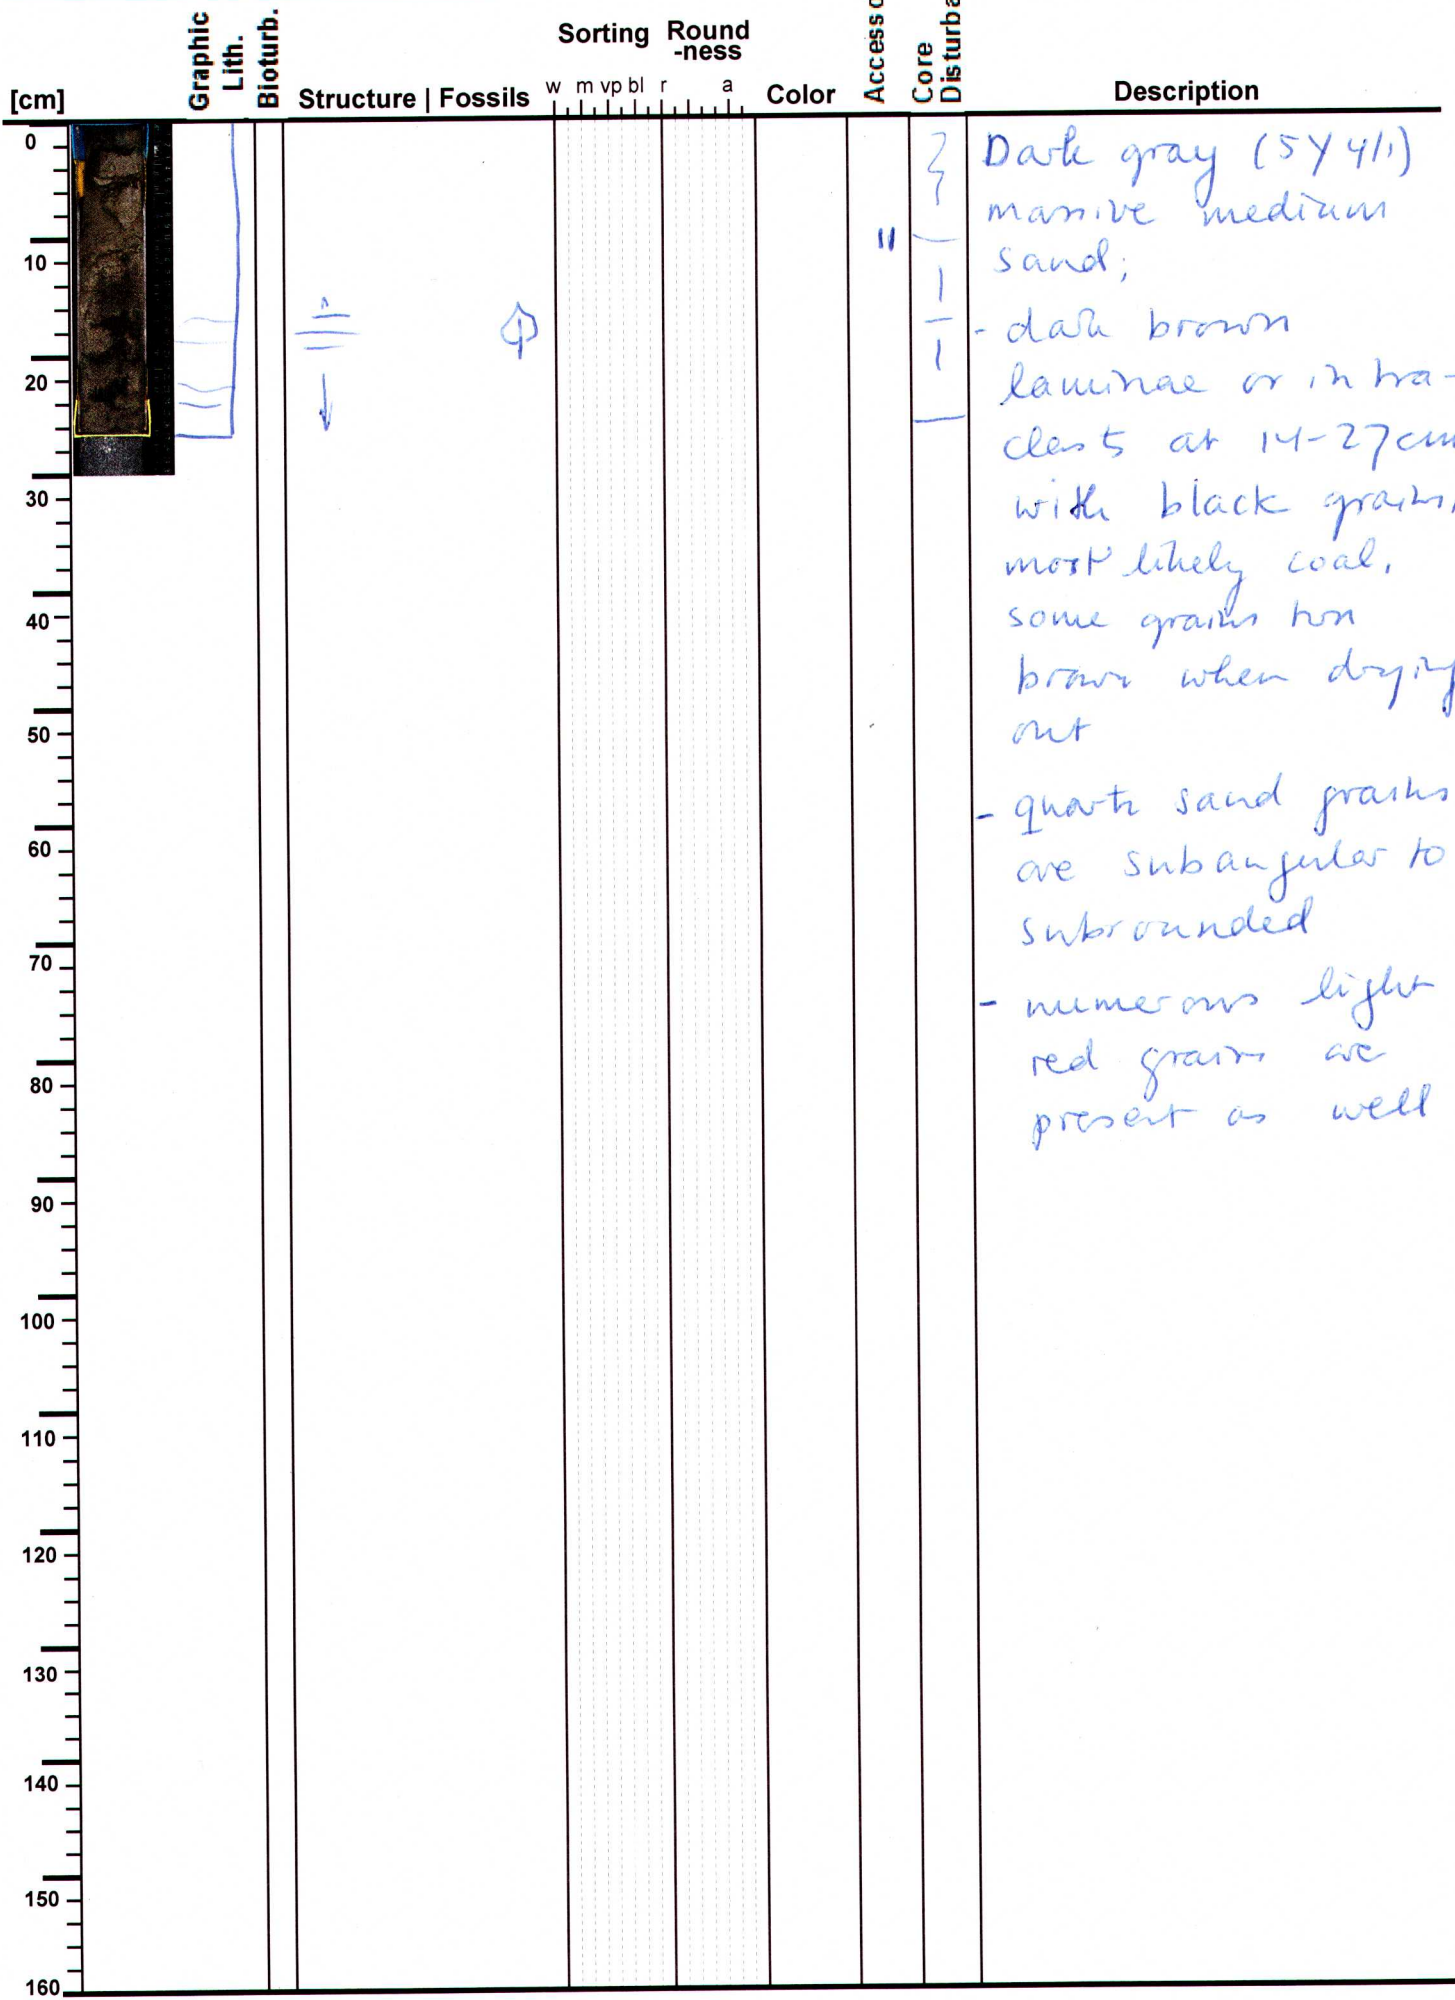 Graphic
Lith.
Bioturb.
Sorting Round
-ness
Core
Disturba
[cm] Structure | Fossils w m vp bl r a Color Accesso Description
0
10
20
30
40
50
60
70
80
90
100
110
120
130
140
150
160
"
Dark gray (5Y 4/1)
massive medium
sand;
- dark brown
laminae or intra-
clasts at 14-27cm
with black grains,
most likely coal,
some grains turn
brown when drying
out
- quartz sand grains
are subangular to
subrounded
- numerous light
red grains are
present as well